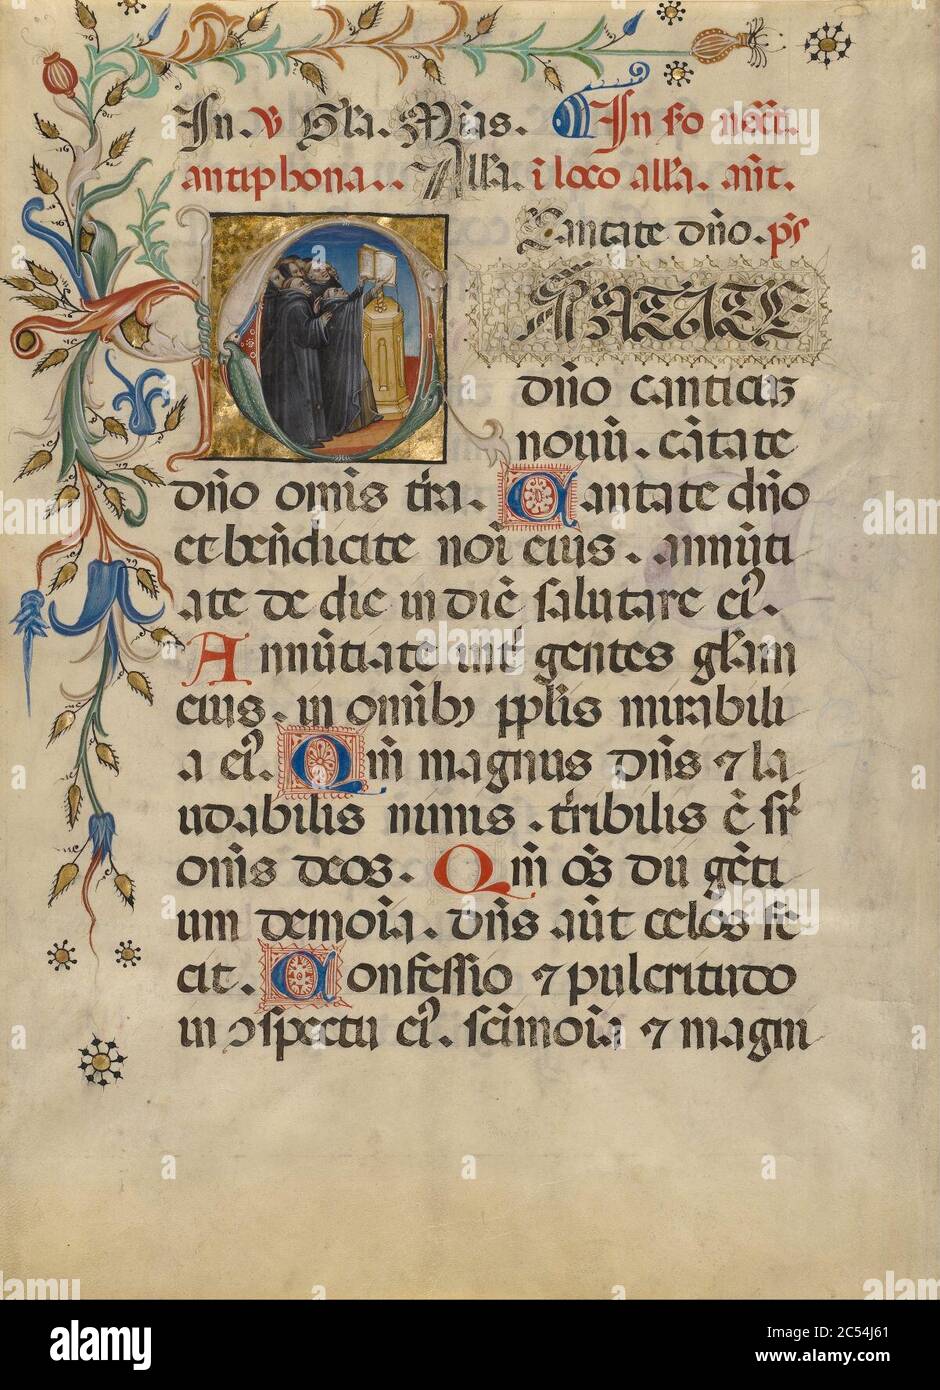 In. v Gła. Mīas. In fo nocť.
antiphona.. Ałła. ī loco ałła. añt.
Cantate dño. ps̃
CANTATE
dño canticuz
nouū. cātate
dño om̄is tr̃a. Cantate dño
et ben̄dicite noī eius. annūti
ate de die in diē salutare ei᾽.
Annūtiate int᾽ gentes głam
eius. in omībȝ ppłis mirabili
a ei᾽. Qm̄ magnus dñs ⁊ la
udabilis nimis. tr̃ibilis ē sr᾽
om̄is deos. Qm̄ oēs dii gēti
um demoīa. dñs aūt celos fe
cit. Confessio ⁊ pulcritudo
in ↄspectu ei᾽. scīmoīa ⁊ magni
alamy
Image ID: 2C54J61
www.alamy.com